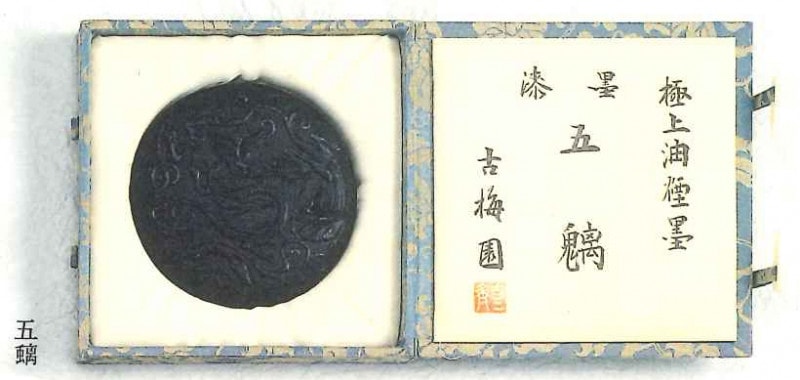 極上油煙墨
漆墨
五魑
古梅園
五螭